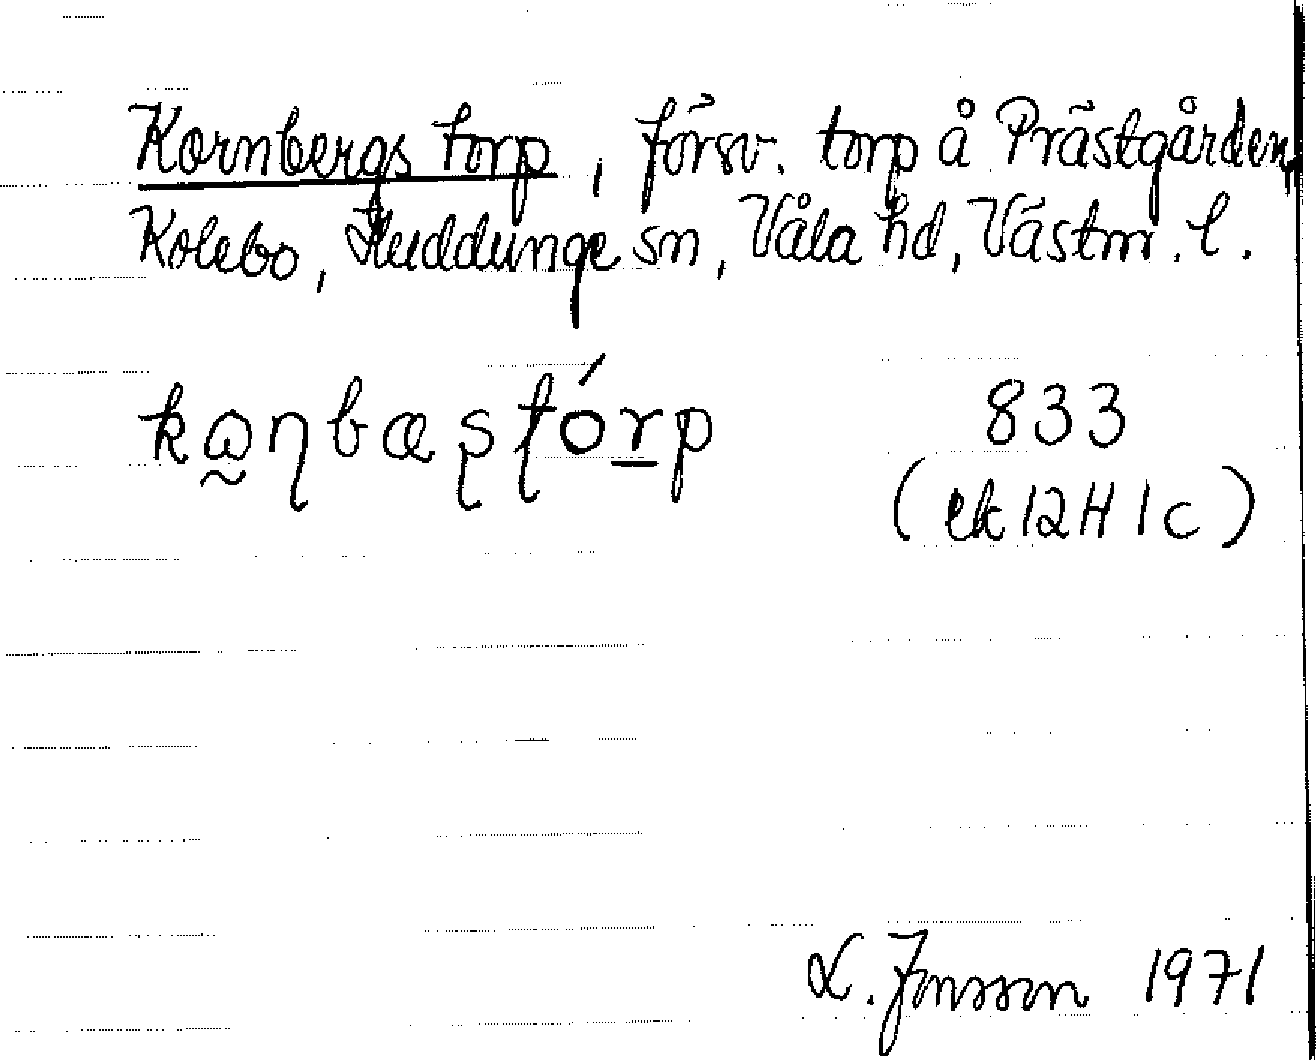 Kornbergs torp, försv. torp å Prästgården,
Kolebo, Huddunge sn, Våla hd, Västm. l.
833
(ek 12H 1c)
L. Jonsson 1971